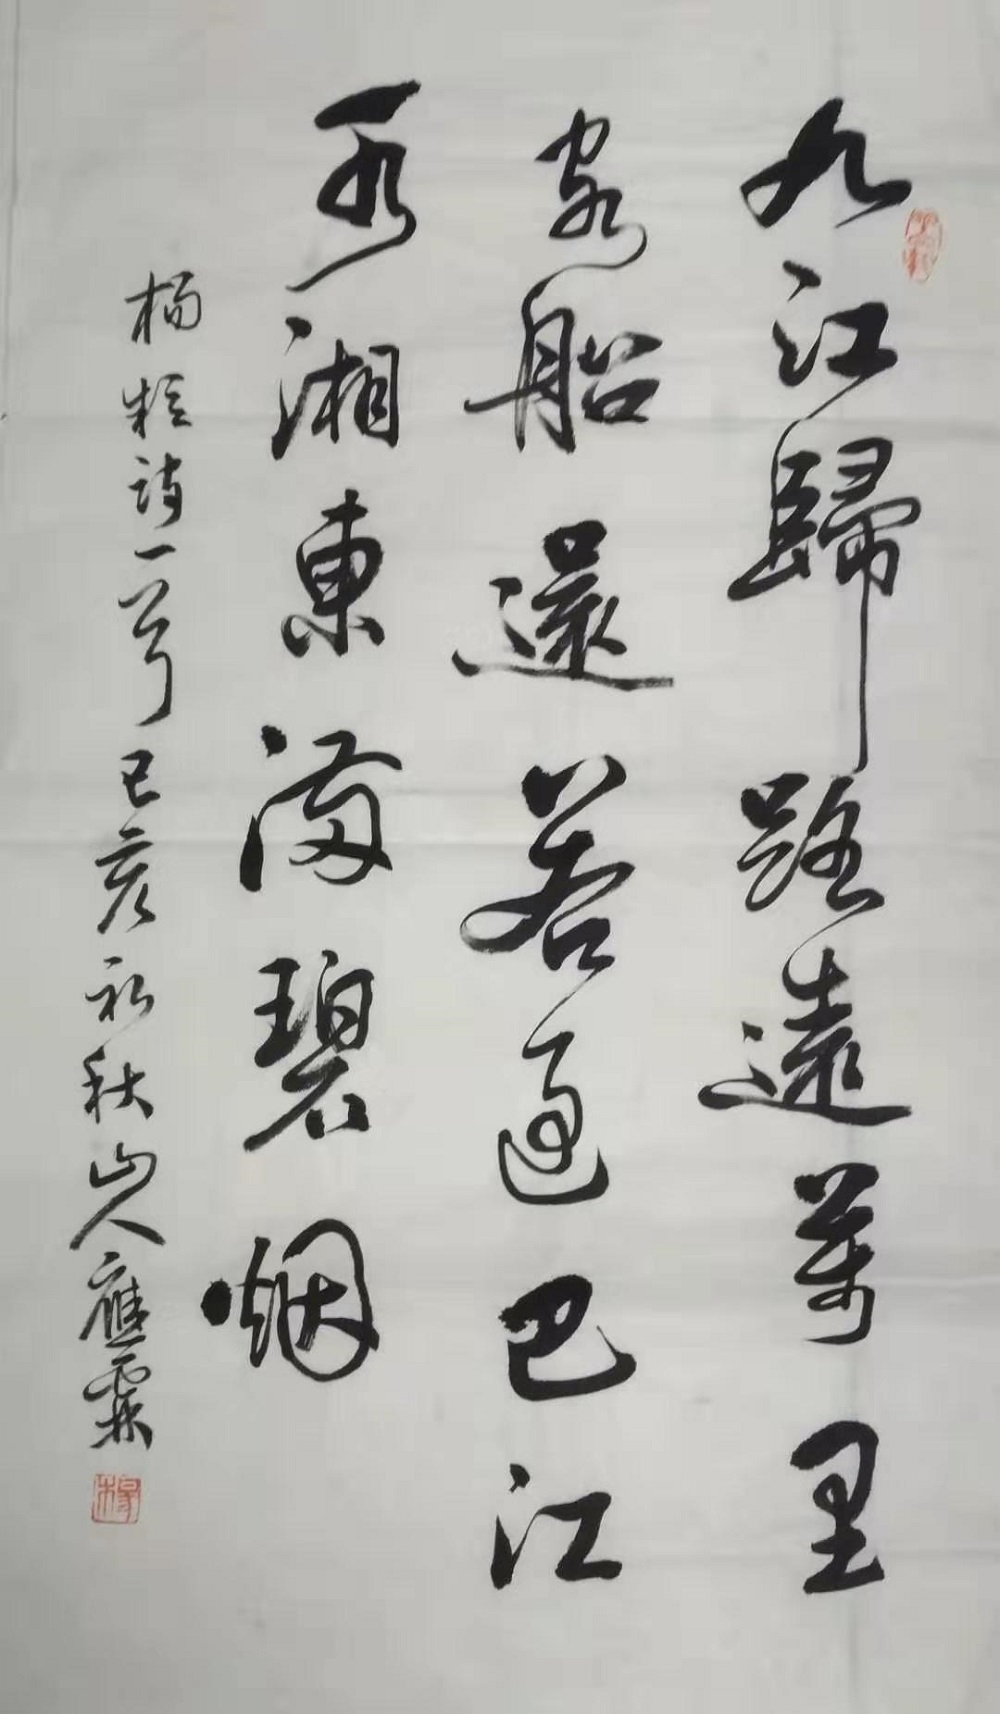 九江歸路遠萬里
客船還若過巴江
水湘東滿碧烟
楊詩一首己亥初秋山人應霖